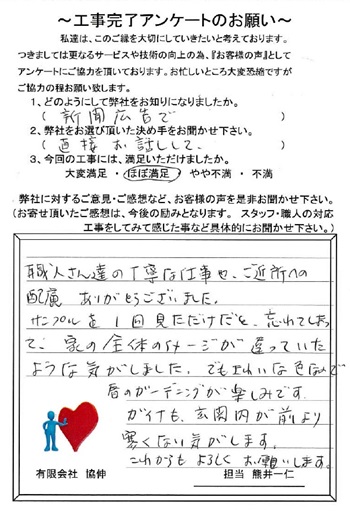 ～工事完了アンケートのお願い～
私達は、このご縁を大切にしていきたいと考えております。
つきましては更なるサービスや技術の向上の為、『お客様の声』として
アンケートにご協力を頂いております。お忙しいところ大変恐縮ですが
ご協力の程お願い致します。
1、どのようにして弊社をお知りになりましたか。
（ 新聞広告で ）
2、弊社をお選び頂いた決め手をお聞かせ下さい。
（ 直接お話しして、 ）
3、今回の工事には、満足いただけましたか。
大変満足 ・ ほぼ満足 ・ やや不満 ・ 不満
弊社に対するご意見・ご感想など、お客様の声を是非お聞かせ下さい。
（お寄せ頂いたご感想は、今後の励みとなります。 スタッフ・職人の対応
工事をしてみて感じた事など具体的にお聞かせ下さい。）
職人さん達の丁寧な仕事や、ご近所への
配慮 ありがとうございました。
サンプルを1回見ただけだと、忘れてしまっ
て、家の全体のイメージが違っていた
ような気がしました。でもきれいな色なので
春のガーデニングが楽しみです。
ガイナも、玄関内が前より
寒くない気がします。
これからもよろしくお願いします。
有限会社 協伸
担当 熊井一仁